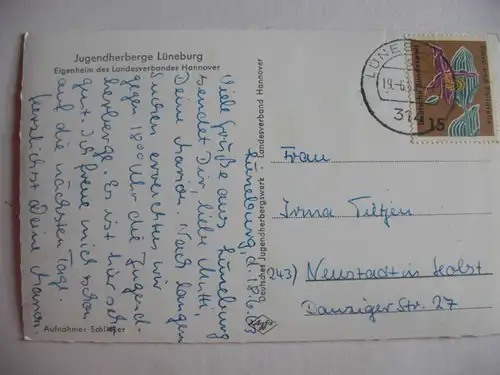 Jugendherberge Lüneburg
Eigenheim des Landesverbandes Hannover
Lüneburg d. 18.6.63
Viele Grüße aus Lüneburg
sendet Dir, liebe Mutti,
Deine Marion. Nach langem
Suchen erreichten wir
gegen 18⁰⁰ Uhr die Jugend-
herberge. Es ist hier sehr
gut. Ich freue mich schon
auf die nächsten Tage.
Herzlichst Deine Marion.
Aufnahme: Schlieper
Deutsches Jugendherbergswerk - Landesverband Hannover
Agfa
LÜNE
19.-6.6
314
15
Frau
Irma Tietjen
243) Neustadt in Holst
Danziger Str. 27